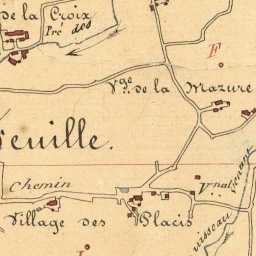 de la Croix
Pré des
F
Vge. de la Mazure
euille.
Chemin
Vnal
Venant
Village des Placis
ruisseau